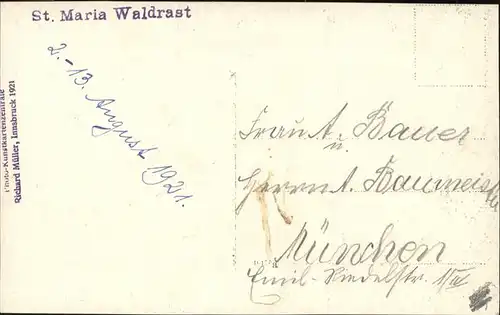 St. Maria Waldrast
2.-13. August 1921.
Photo-Kunstkartenzentrale
Richard Müller, Innsbruck 1921
Frau A. Bauer
u.
Herrn A. Baumeister
München
Emil-Riedelstr.